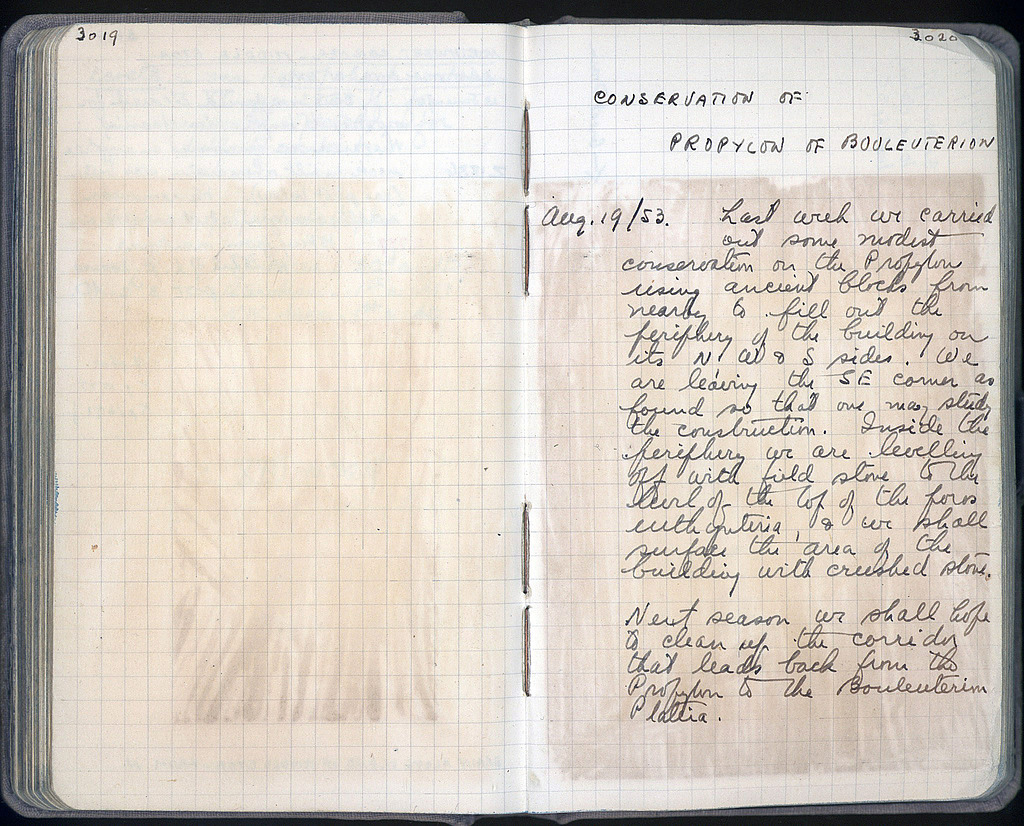 3019
3020
CONSERVATION OF
PROPYLON OF BOULEUTERION
Aug. 19/53. Last week we carried
out some modest
conservation on the Propylon
using ancient blocks from
nearby to fill out the
periphery of the building on
its N, W & S sides. We
are leaving the SE corner as
found so that one may study
the construction. Inside the
periphery we are levelling
off with field stone to the
level of the top of the poros
euthynteria, & we shall
surface the area of the
building with crushed stone.
Next season we shall hope
to clean up the corridor
that leads back from the
Propylon to the Bouleuterion
Plateia.